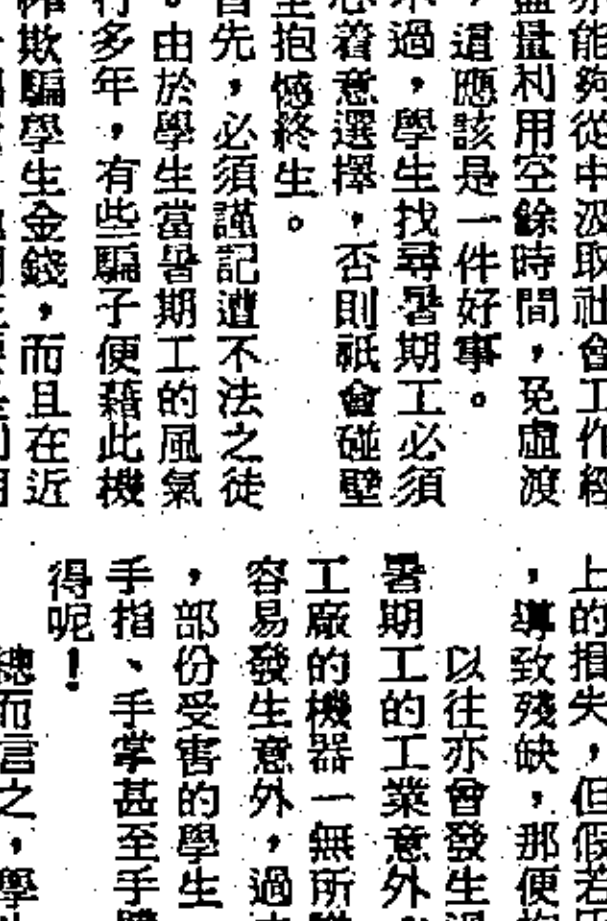 亦能夠從中汲取社會工作經
盡量利用空餘時間，免虛渡
，這應該是一件好事。
不過，學生找尋暑期工必須
心着意選擇，否則祇會碰壁
至抱憾終生。
首先，必須謹記遭不法之徒
。由於學生當暑期工的風氣
行多年，有些騙子便藉此機
欺騙學生金錢，而且在近
上的損失，但假若
，導致殘缺，那便
以往亦曾發生
暑期工的工業意外
工廠的機器一無所
容易發生意外，過
，部份受害的學生
手指、手掌甚至手
得呢！
總而言之，學